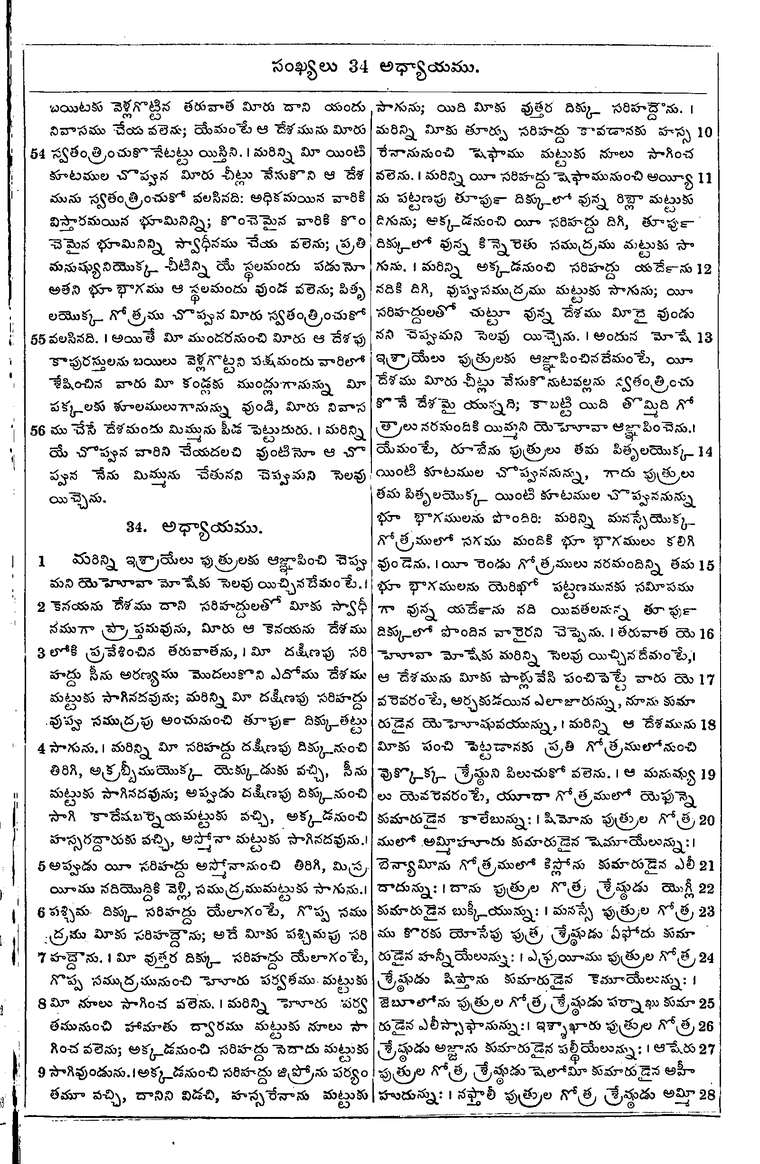 సంఖ్యలు 34 అధ్యాయము.
బయిటకు వెళ్లగొట్టిన తరువాత మీరు దాని యందు
నివాసము చేయ వలెను; యేమంటే ఆ దేశమును మీరు
54 స్వతంత్రించుకొనేటట్టు యిస్తిని. । మరిన్ని మీ యింటి
కూటముల చొప్పున మీరు చీట్లు వేసుకొని ఆ దేశ
మును స్వతంత్రించుకో వలసినది: అధికమయిన వారికి
విస్తారమయిన భూమినిన్ని; కొంచెమైన వారికి కొం
చెమైన భూమినిన్ని స్వాధీనము చేయ వలెను; ప్రతి
మనుష్యునియొక్క చీటిన్ని యే స్థలమందు పడునో
అతని భూ భాగము ఆ స్థలమందు వుండ వలెను; పితృ
లయొక్క గోత్రము చొప్పున మీరు స్వతంత్రించుకో
55 వలసినది. । అయితే మీ ముందరనుంచి మీరు ఆ దేశపు
కాపురస్తులను బయిలు వెళ్లగొట్టని పక్షమందు వారిలో
శేషించిన వారు మీ కండ్లకు ముండ్లుగానున్ను మీ
పక్కలకు శూలములుగానున్ను వుండి, మీరు నివాస
56 ము చేసే దేశమందు మిమ్మును పీడ పెట్టుదురు. । మరిన్ని
యే చొప్పున వారిని చేయదలచి వుంటినో ఆ చొ
ప్పున నేను మిమ్మును చేతునని చెప్పుమని సెలవు
యిచ్చెను.
34. అధ్యాయము.
1 మరిన్ని ఇశ్రాయేలు పుత్రులకు ఆజ్ఞాపించి చెప్పు
మని యెహోవా మోషేకు సెలవు యిచ్చినదేమంటే. ।
2 కెనయను దేశము దాని సరిహద్దులతో మీకు స్వాధీ
నముగా ప్రాప్తమవును, మీరు ఆ కెనయను దేశము
3 లోకి ప్రవేశించిన తరువాతను, । మీ దక్షిణపు సరి
హద్దు సీను అరణ్యము మొదలుకొని ఎదోము దేశము
మట్టుకు సాగినదవును; మరిన్ని మీ దక్షిణపు సరిహద్దు
వుప్పు సముద్రపు అంచునుంచి తూర్పు దిక్కుతట్టు
4 సాగును. । మరిన్ని మీ సరిహద్దు దక్షిణపు దిక్కునుంచి
తిరిగి, అక్రబ్బీముయొక్క యెక్కుడుకు వచ్చి, సీను
మట్టుకు సాగినదవును; అప్పుడు దక్షిణపు దిక్కునుంచి
సాగి కాదేషబర్నెయమట్టుకు వచ్చి, అక్కడనుంచి
హస్సరద్దారుకు వచ్చి, అస్మోనా మట్టుకు సాగినదవును. ।
5 అప్పుడు యీ సరిహద్దు అస్మోనానుంచి తిరిగి, మిస్ర
యీము నదియొద్దికి వెళ్లి, సముద్రముమట్టుకు సాగును. ।
6 పశ్చిమ దిక్కు సరిహద్దు యేలాగంటే, గొప్ప సము
ద్రము మీకు సరిహద్దౌను; అదే మీకు పశ్చిమపు సరి
7 హద్దౌను. । మీ వుత్తర దిక్కు సరిహద్దు యేలాగంటే,
గొప్ప సముద్రమునుంచి హోరు పర్వతము మట్టుకు
8 మీ నూలు సాగించ వలెను. । మరిన్ని హోరు పర్వ
తమునుంచి హామాతు ద్వారము మట్టుకు నూలు సా
గించ వలెను; అక్కడనుంచి సరిహద్దు సెదాదు మట్టుకు
9 సాగివుండును. । అక్కడనుంచి సరిహద్దు జిప్రోను పర్యం
తమూ వచ్చి, దానిని విడచి, హస్సరేనాను మట్టుకు
సాగును; యిది మీకు వుత్తర దిక్కు సరిహద్దౌను. ।
మరిన్ని మీకు తూర్పు సరిహద్దు కావడానకు హస్స 10
రేనానునుంచి షెఫాము మట్టుకు నూలు సాగించ
వలెను. । మరిన్ని యీ సరిహద్దు షెఫామునుంచి అయ్యీ 11
ను పట్టణపు తూర్పు దిక్కులో వున్న రిబ్లా మట్టుకు
దిగును; అక్కడనుంచి యీ సరిహద్దు దిగి, తూర్పు
దిక్కులో వున్న కిన్నెరెతు సముద్రము మట్టుకు సా
గును. । మరిన్ని అక్కడనుంచి సరిహద్దు యర్దేను 12
నదికి దిగి, వుప్పుసముద్రము మట్టుకు సాగును; యీ
సరిహద్దులతో చుట్టూ వున్న దేశము మీదై వుండు
నని చెప్పుమని సెలవు యిచ్చెను. । అందున మోషే 13
ఇశ్రాయేలు పుత్రులకు ఆజ్ఞాపించినదేమంటే, యీ
దేశము మీరు చీట్లు వేసుకొనుటవల్లను స్వతంత్రించు
కొనే దేశమై యున్నది; కాబట్టి యిది తొమ్మిది గో
త్రాలు నరమందికి యిమ్మని యెహోవా ఆజ్ఞాపించెను. ।
యేమంటే, రూబేను పుత్రులు తమ పితృలయొక్క 14
యింటి కూటముల చొప్పుననున్ను, గాదు పుత్రులు
తమ పితృలయొక్క యింటి కూటముల చొప్పుననున్ను
భూ భాగములను పొందిరి: మరిన్ని మనస్సేయొక్క
గోత్రములో సగము మందికి భూ భాగములు కలిగి
వుండెను. । యీ రెండు గోత్రములు నరమందిన్ని తమ 15
భూ భాగములను యెరిఖో పట్టణమునకు సమీపము
గా వున్న యర్దేను నది యివతలనున్న తూర్పు
దిక్కులో పొందిన వారైరని చెప్పెను. । తరువాత యె 16
హోవా మోషేకు మరిన్ని సెలవు యిచ్చినదేమంటే, ।
ఆ దేశమును మీకు పాళ్లువేసి పంచిపెట్టే వారు యె 17
వరెవరంటే, అర్చకుడయిన ఎలాజారున్ను, నూను కుమా
రుడైన యెహోషువయున్ను, । మరిన్ని ఆ దేశమును 18
మీకు పంచి పెట్టడానకు ప్రతి గోత్రములోనుంచి
వొక్కొక్క శ్రేష్ఠుని పిలుచుకో వలెను. । ఆ మనుష్యు 19
లు యెవరెవరంటే, యూదా గోత్రములో యెఫున్నె
కుమారుడైన కాలేబున్ను: । షిమెోను పుత్రుల గోత్ర 20
ములో అమ్మిహూదు కుమారుడైన షెమూయేలున్ను: ।
బెన్యామీను గోత్రములో కిస్లోను కుమారుడైన ఎలీ 21
దాదున్ను: । దాను పుత్రుల గోత్ర శ్రేష్ఠుడు యొగ్లీ 22
కుమారుడైన బుక్కీయున్ను: । మనస్సే పుత్రుల గోత్ర 23
ము కొరకు యోసేపు పుత్ర శ్రేష్ఠుడు ఏఫోదు కుమా
రుడైన హన్నీయేలున్ను: । ఎఫ్రయీము పుత్రుల గోత్ర 24
శ్రేష్ఠుడు షిఫ్తాను కుమారుడైన కెమూయేలున్ను: ।
జెబూలోను పుత్రుల గోత్ర శ్రేష్ఠుడు పర్నాఖు కుమా 25
రుడైన ఎలీస్సాఫానున్ను: । ఇశ్శాఖారు పుత్రుల గోత్ర 26
శ్రేష్ఠుడు అజ్జాను కుమారుడైన పల్తీయేలున్ను: । ఆషేరు 27
పుత్రుల గోత్ర శ్రేష్ఠుడు షెలోమీ కుమారుడైన అహీ
హుదున్ను: । నఫ్తాలీ పుత్రుల గోత్ర శ్రేష్ఠుడు అమ్మి 28